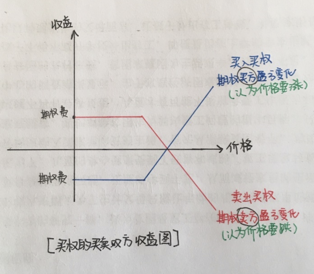 收益
买入买权
期权买方盈亏变化
(认为价格要涨)
期权费
价格
期权费
卖出买权
期权卖方盈亏变化
(认为价格要跌)
[买权的买卖双方收益图]